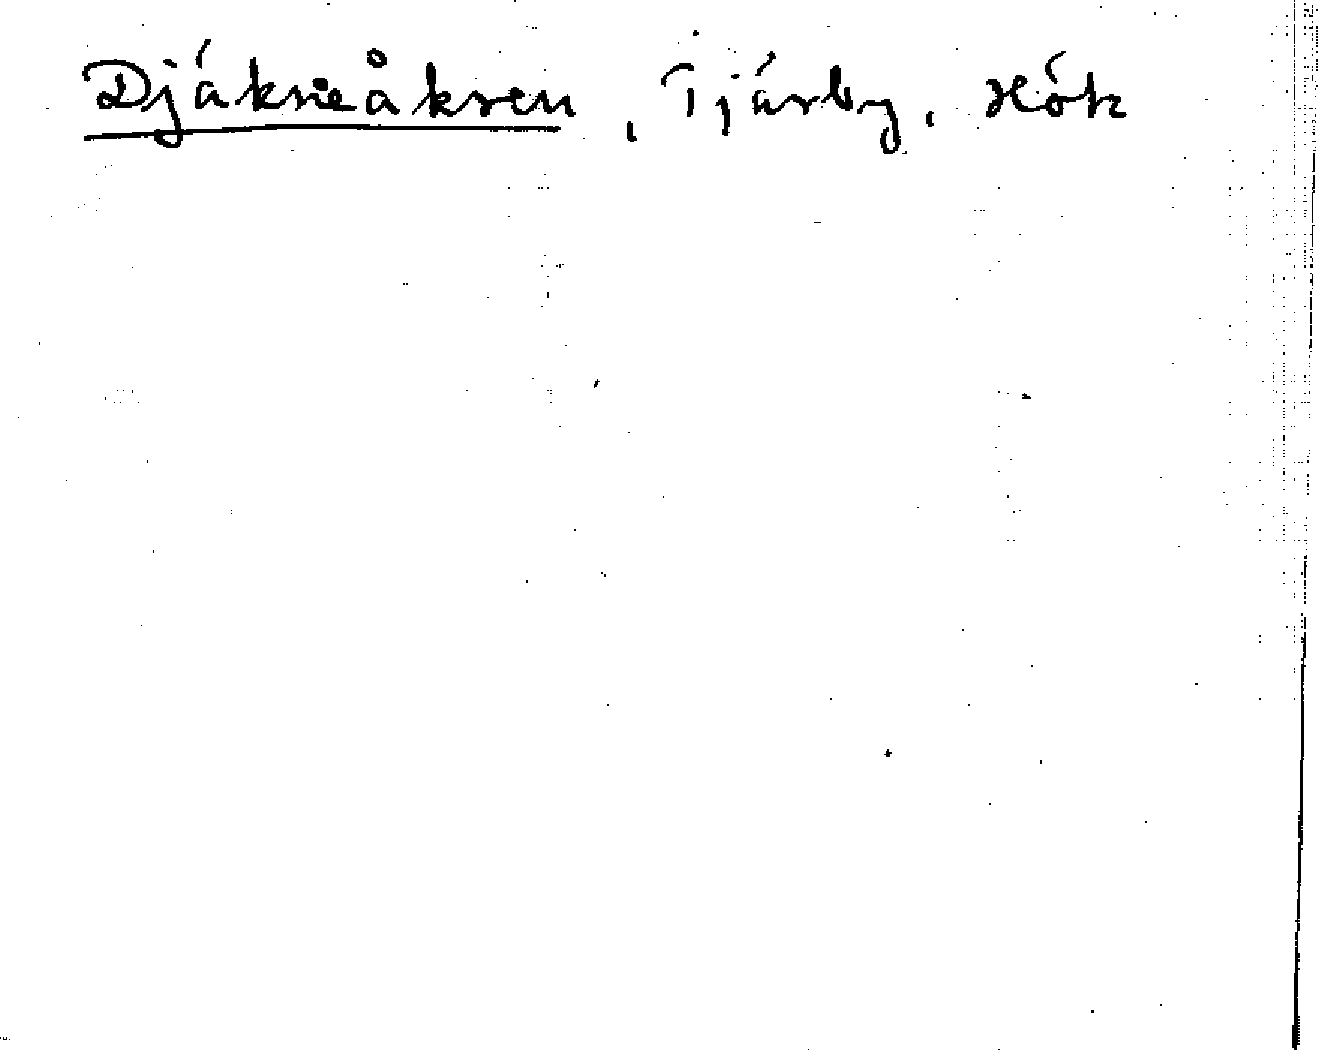 Djäkneåkren, Tjärby, Hök